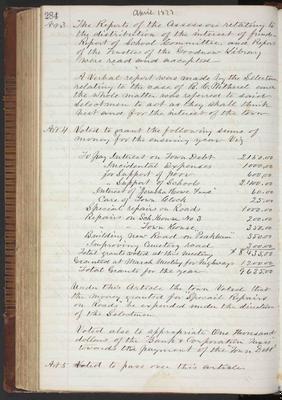 284
April 1877
Art 3 The Reports of the Assessors relating to
the distribution of the interest of funds
Report of School Committee and Report
of the Trustees of the Goodnow Library
were read and accepted
A verbal report was made by the Selectmen
relating to the case of
the whole matter was referred to said
Selectmen to act as they shall think
best and for the interest of the town
Art 4 Voted to grant the following sums of
money for the ensuing year viz
To Pay Interest on Town Debt 2150.00
" Incidental Expenses 1000.00
for Support of poor 600.00
" Support of Schools 2400.00
Interest of 60.00
Care of Town Clock 25.00
Special repairs on Roads 1000.00
Repairs on Sch House No 3 200.00
" " Town House
Building New Road
Improving Cemetery road 300.00
Total grants voted at this meeting
Granted at March Meeting for Highways
Total Grants for the year 9635.00
Under this Article the town Voted that
the money granted for Special Repairs
on Roads be expended under the direction
of the Selectmen
Voted also to appropriate One thousand
dollars of the Bank & Corporation Taxes
towards the payment of the Town Debt
Art 5 Voted to pass over this article